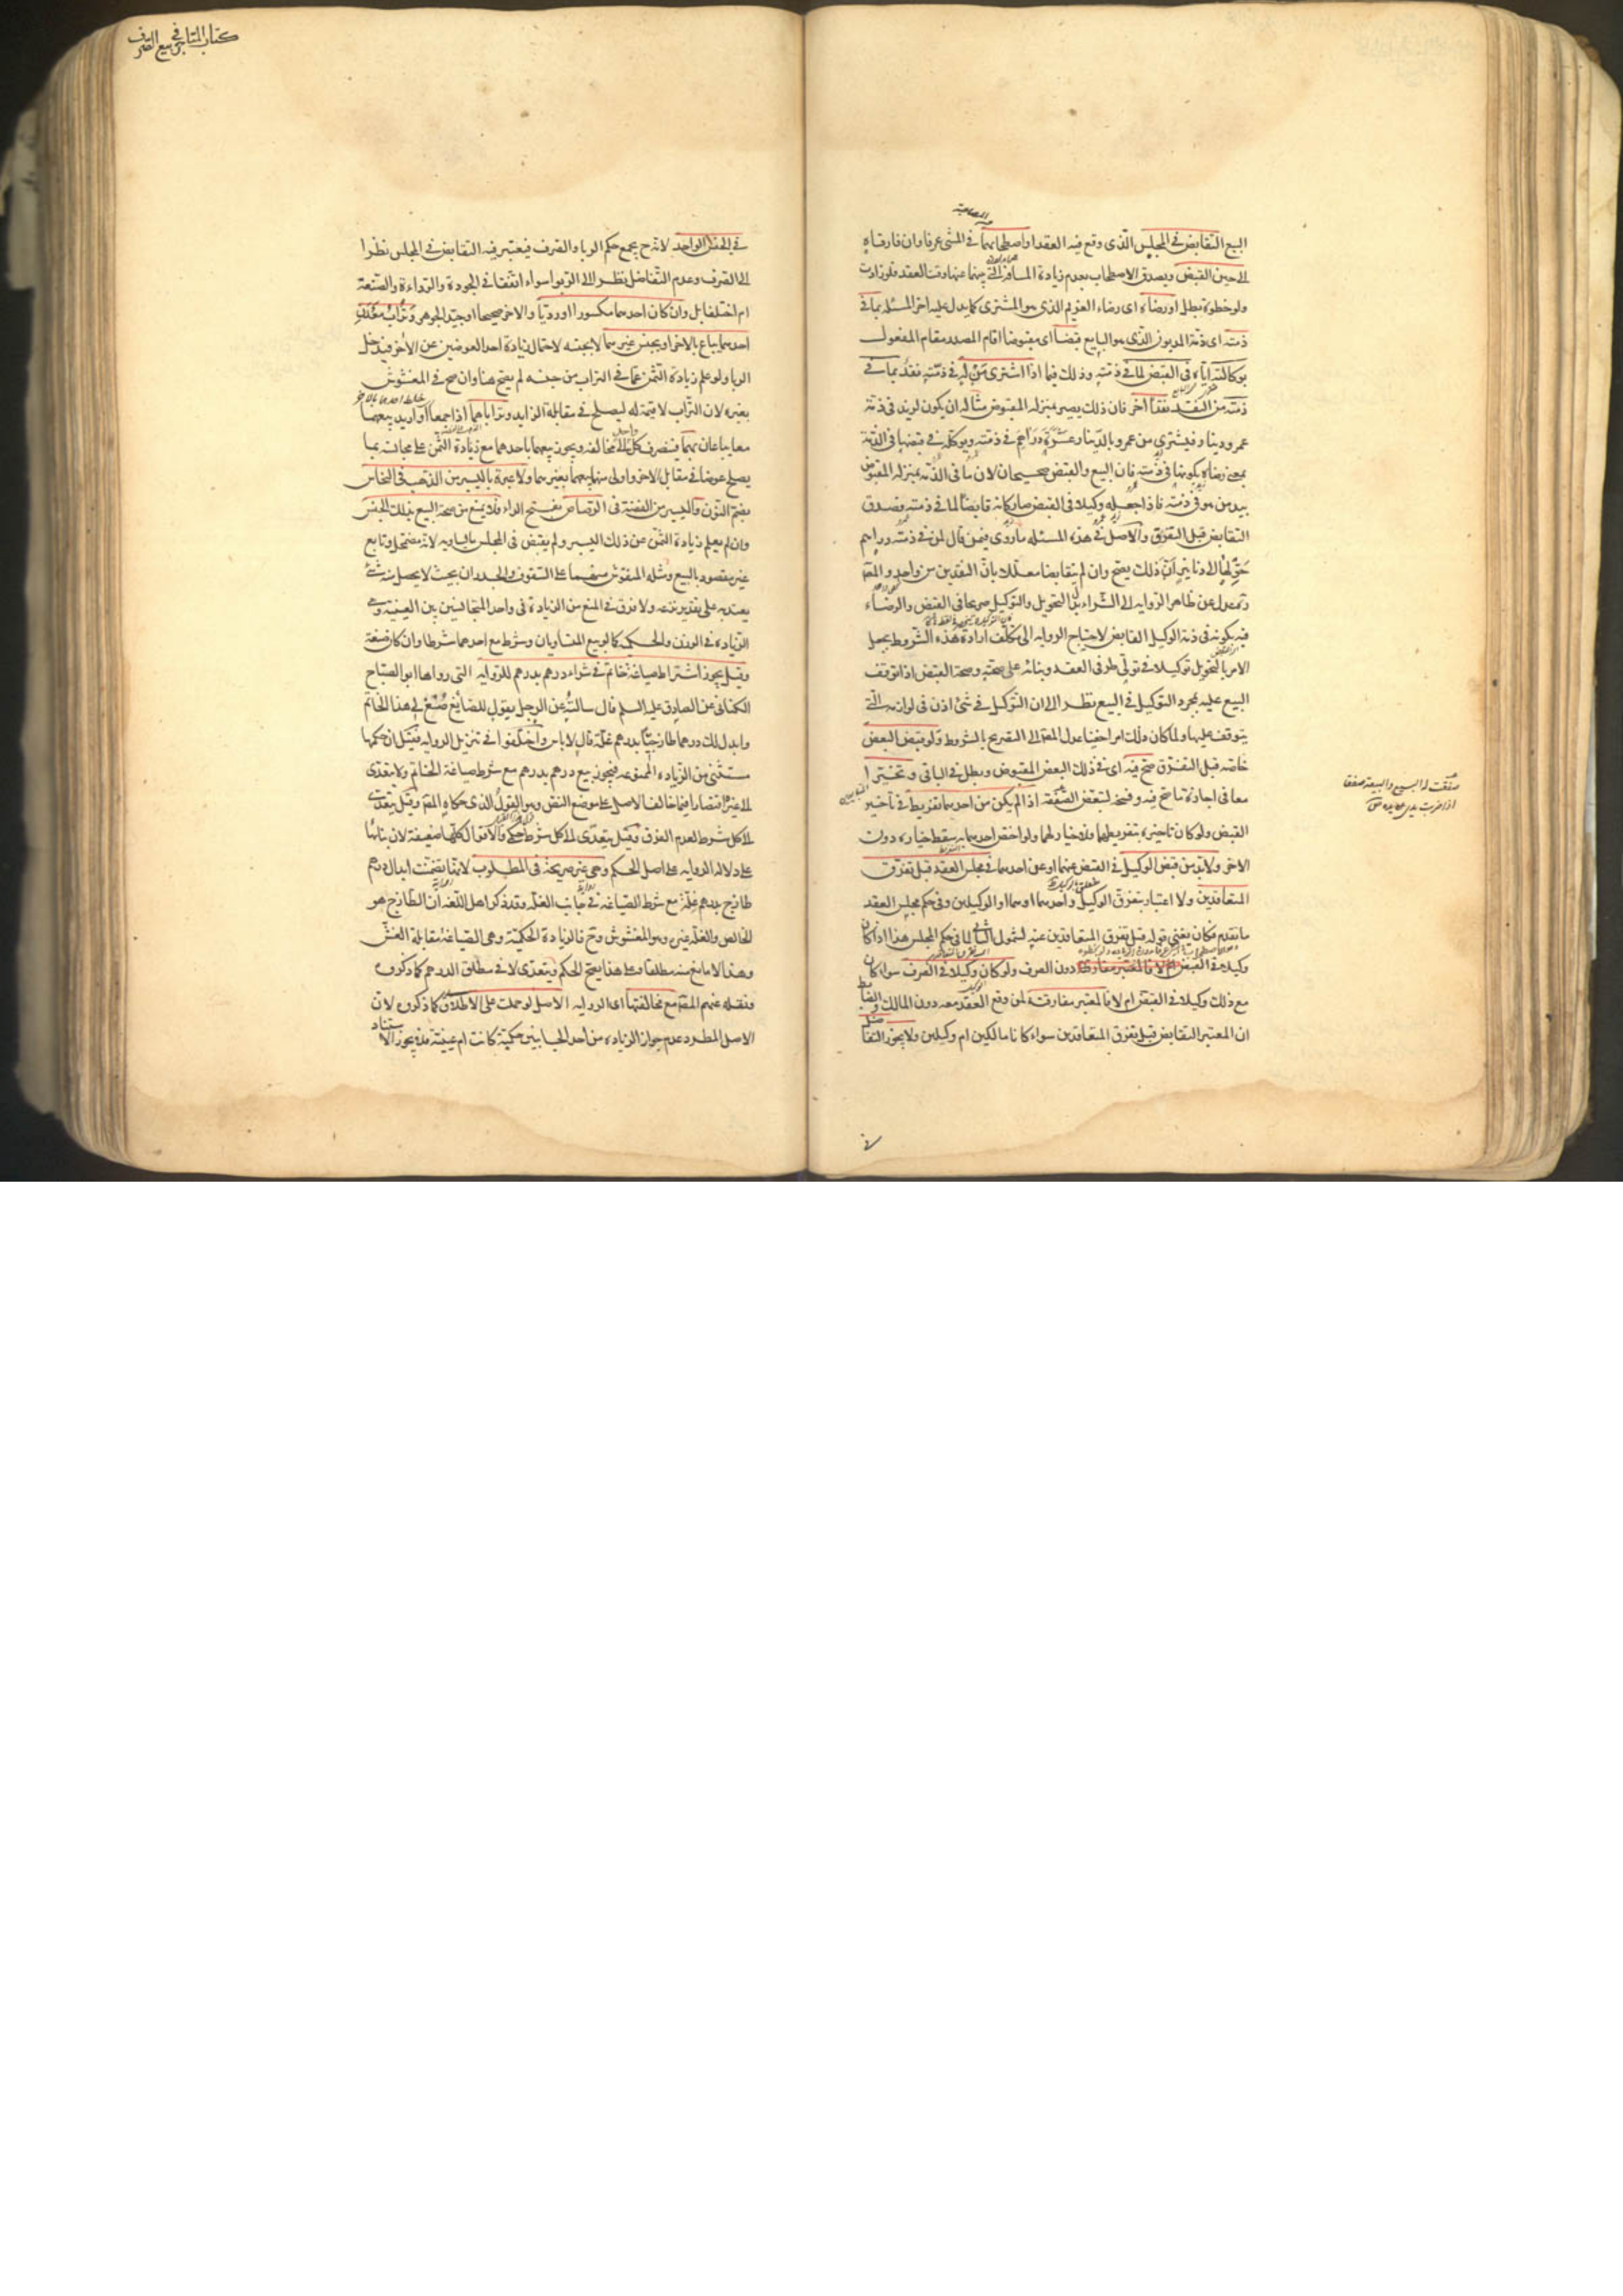 البيع التقابض في المجلس الذي وقع فيه العقد او اصطحابهما في المشي عرفا وان فارقاه
الى حين القبض ويصدق الاصطحاب بعدم زيادة المسافة التي بينهما عنها وقت العقد فلو زادت
ولو خطوة بطل او رضاه اى رضاء الغريم الذي هو المشتري كما يدل عليه اخر المسئلة بما في
ذمته اى ذمة المديون الذي هو البايع قبضا اى مقبوضا اقام المصدر مقام المفعول
بوكالته اياه في القبض لما في ذمته وذلك فيما اذا اشترى من له في ذمته نقد بما في
ذمته من النقد نقدا اخر فان ذلك يصير بمنزلة المقبوض مثاله ان يكون لزيد في ذمة
عمرو دينار فيشتري من عمرو بالدينار عشرة دراهم في ذمته ويوكله في قبضها في الذمة
بمعنى رضاه بكونها في ذمته فان البيع والقبض صحيحان لان ما في الذمة بمنزلة المقبوض
بيد من هو في ذمته فاذا جعله وكيلا في القبض صار كانه قابضا لما في ذمته فصدق
التقابض قبل التفرق والاصل في هذه المسئلة ما روي فيمن قال لمن في ذمته دراهم
حولها الى دنانير ان ذلك يصح وان لم يتقابضا معللا بان النقدين من واحد والمصنف
عدل عن ظاهر الرواية الى الشراء بدل التحويل والتوكيل صريحا في القبض والرضاء
فيه بكونه في ذمة الوكيل القابض لاحتياج الرواية الى تكلف ارادة هذه الشروط بجعل
الامر بالتحويل توكيلا في تولي طرفي العقد وبنائه على صحته وصحة القبض اذا توقف
البيع عليه بمجرد التوكيل في البيع نظرا الى ان التوكيل في شئ اذن في لوازمه التي
يتوقف عليها ولما كان ذلك امرا خفيا عدل المص الى التصريح بالشروط ولو قبض البعض
خاصة قبل التفرق صح فيه اى في ذلك البعض المقبوض وبطل في الباقي وتخيرا
معا في اجازة ما صح فيه وفسخه لتبعض الصفقة اذا لم يكن من احدهما تفريط في تأخير
القبض ولو كان تاخيره بتفريطهما فلا خيار لهما ولو اختص احدهما به سقط خياره دون
الاخر ولا بد من قبض الوكيل في القبض عنهما او عن احدهما في مجلس العقد قبل تفرق
المتعاقدين ولا اعتبار بتفرق الوكيل واحدهما او هما او الوكيلين وفي حكم مجلس العقد
ما تقدم فكان يغني قوله قبل تفرق المتعاقدين عنه لشمول الثاني لما في حكم المجلس هذا اذا كان
وكيلا في القبض لان المعتبر مفارقة دون الصرف ولو كان وكيلا في الصرف سواء كان
مع ذلك وكيلا في القبض ام لا فالمعتبر مفارقته لمن وقع العقد معه دون المالك والضابط
ان المعتبر التقابض قبل تفرق المتعاقدين سواء كانا مالكين ام وكيلين ولا يجوز التفاضل
في
صفقت له البيع والبيعة صفقا
كتاب المتاجر في بيع الصرف
في الجنس الواحد لانه ح يجمع حكم الربا والصرف فيعتبر فيه التقابض في المجلس نظرا
الى الصرف وعدم التفاضل نظرا الى الربوا سواء اتفقا في الجودة والرداءة والصنعة
ام اختلفا بل وان كان احدهما مكسورا او رديا والاخر صحيحا او جيد الجوهر وتراب معدن
احدهما يباع بالاخر او بجنس غيرهما لا بجنسه لاحتمال زيادة احد العوضين عن الاخر فيدخل
الربا ولو علم زيادة الثمن عما في التراب من جنسه لم يصح هنا وان صح في المغشوش
بغيره لان التراب لا قيمة له ليصلح في مقابلة الزايد وتراباهما اذا جمعا او اريد بيعهما
معا يباعان بهما فينصرف كل الى مخالفه ويجوز بيعهما باحدهما مع زيادة الثمن على مجانسه بما
يصلح عوضا في مقابل الاخر واولى منهما بيعهما بغيرهما ولا عبرة باليسير من الذهب في النحاس
بضم النون واليسير من الفضة في الرصاص بفتح الراء فلا يمنع من صحة البيع بذلك الجنس
وان لم يعلم زيادة الثمن عن ذلك اليسير ولم يقبض في المجلس ما يساويه لانه مضمحل وتابع
غير مقصود بالبيع ومثله المنقوش منهما على السقوف والجدران بحيث لا يحصل منه شئ
يعتد به على تقدير نزعه ولا فرق في المنع من الزيادة في واحد المتجانسين بين العينية وهي
الزيادة في الوزن والحكمية كما لو بيع المتساويان وشرط مع احدهما شرطا وان كان صنعة
وقيل يجوز اشتراط صياغة خاتم في شراء درهم بدرهم للرواية التي رواها ابو الصباح
الكناني عن الصادق عليه السلم قال سالته عن الرجل يقول للصائغ صغ لي هذا الخاتم
وابدل لك درهما طازجيا بدرهم غلة قال لا باس واختلفوا في تنزيل الرواية فقيل ان حكمها
مستثنى من الزيادة الممنوعة فيجوز بيع درهم بدرهم مع شرط صياغة الخاتم ولا يتعدى
الى غيره اقتصارا فيما خالف الاصل على موضع النص وهو القول الذي حكاه المص وقيل يتعدى
الى كل شرط لعدم الفرق وقيل يتعدى الى كل شرط حكمي والاقوال كلها ضعيفة لان بناءها
على دلالة الرواية على اصل الحكم وهي غير صريحة في المطلوب لانها تضمنت ابدال درهم
طازج بدرهم غلة مع شرط الصياغة في جانب الغلة وقد ذكر اهل اللغة ان الطازج هو
الخالص والغلة غيره وهو المغشوش وح فالزيادة الحكمية وهي الصياغة مقابلة الغش
وهذا لا مانع منه مطلقا وعلى هذا يصح الحكم ويتعدى لا في مطلق الدرهم كما ذكروه
ونقله عنهم المص مع مخالفتها اى الرواية الاصل لو حملت على الاطلاق كما ذكروه لان
الاصل المطرد عدم جواز الزيادة من احد الجانبين حكمية كانت ام عينية فلا يجوز الاستناد